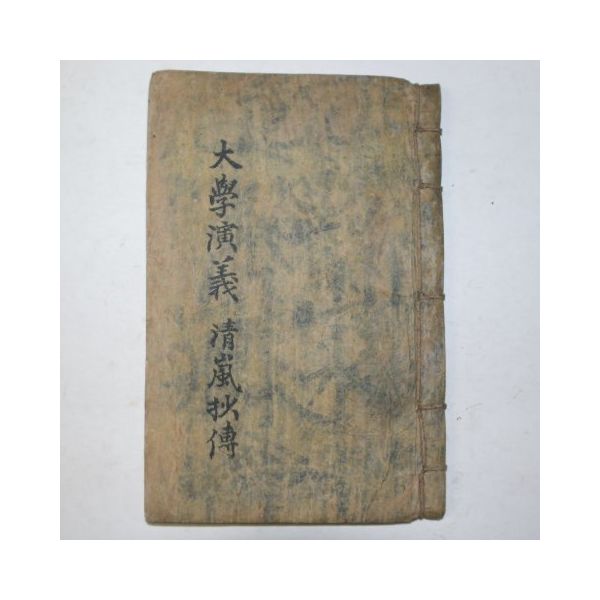 大學演義 清嵐抄傳